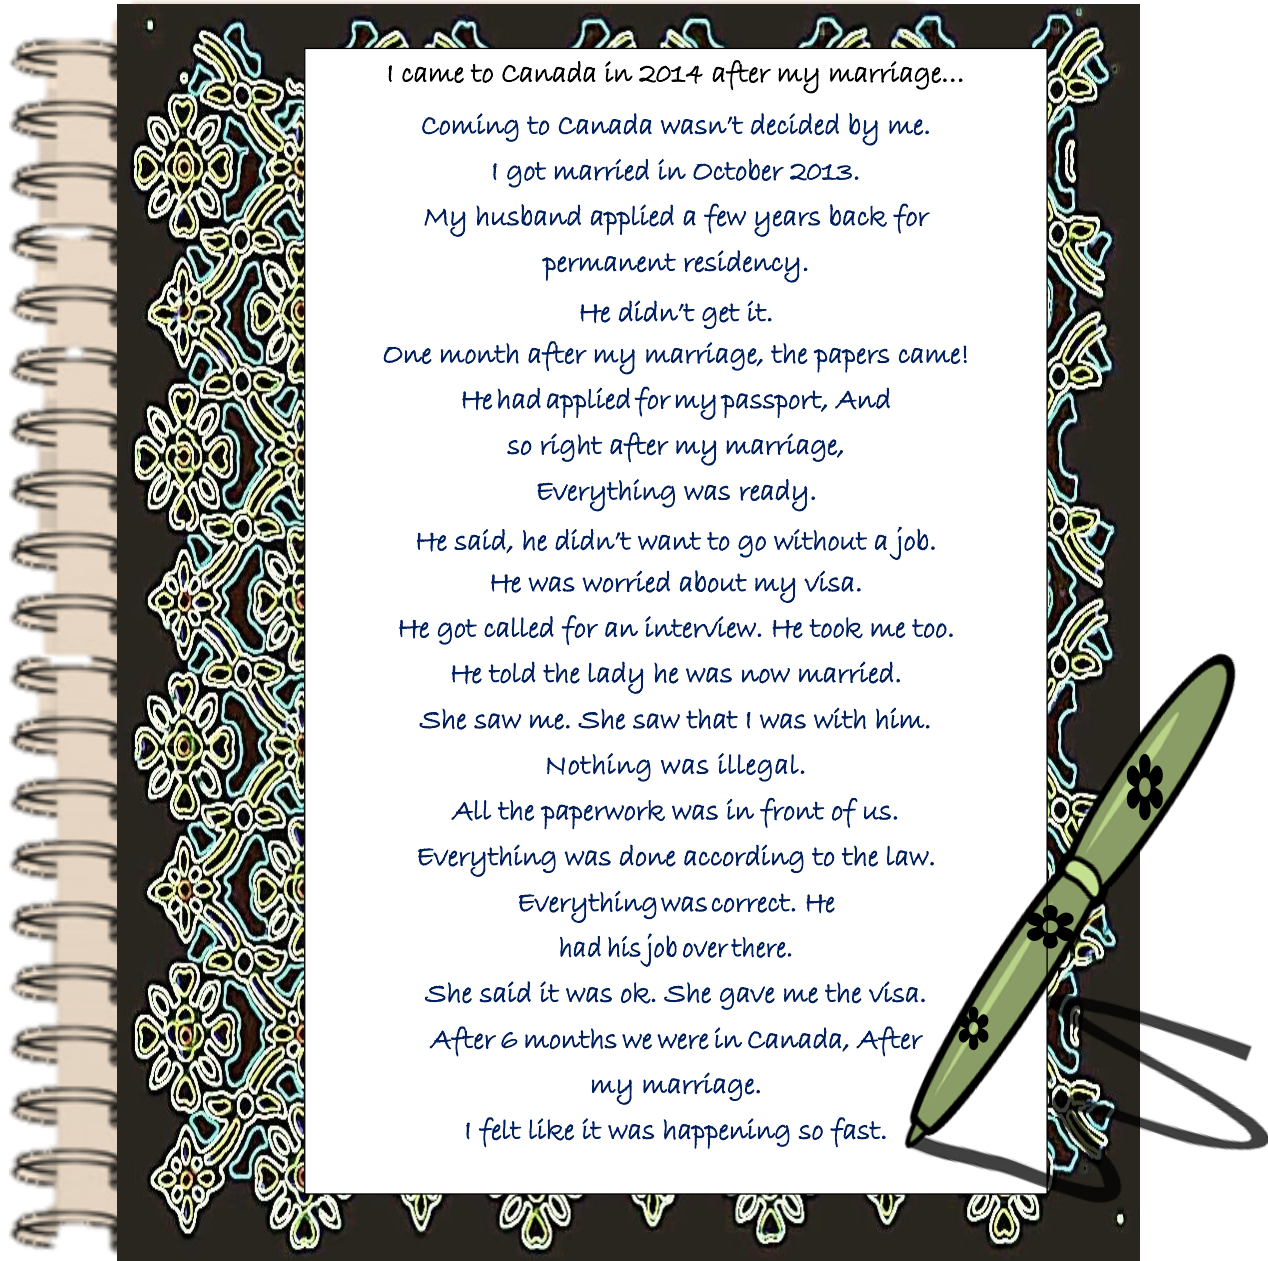 I came to Canada in 2014 after my marriage...
Coming to Canada wasn't decided by me.
I got married in October 2013.
My husband applied a few years back for
permanent residency.
He didn't get it.
One month after my marriage, the papers came!
He had applied for my passport, And
so right after my marriage,
Everything was ready.
He said, he didn't want to go without a job.
He was worried about my visa.
He got called for an interview. He took me too.
He told the lady he was now married.
She saw me. She saw that I was with him.
Nothing was illegal.
All the paperwork was in front of us.
Everything was done according to the law.
Everything was correct. He
had his job over there.
She said it was ok. She gave me the visa.
After 6 months we were in Canada, After
my marriage.
I felt like it was happening so fast.